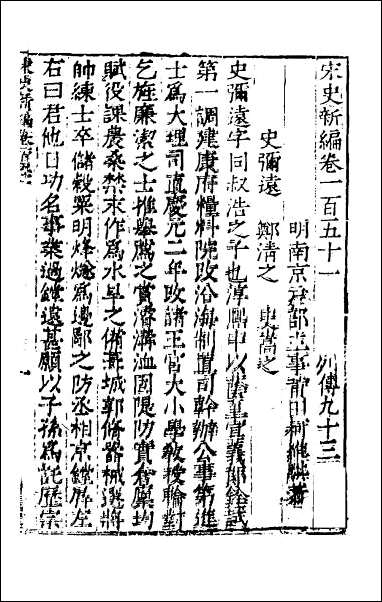 宋史新編卷一百五十一　列傳九十三
明南京戶部主事莆田柯維騏著
史彌遠　鄭清之　史嵩之
史彌遠字同叔浩之子也淳熙中以蔭補宣義郎銓試
第一調建康府糧料院改沿海制置司幹辦公事第進
士爲大理司直慶元二年改諸王宮大小學教授輪對
乞旌廉潔之士推舉薦之賞濬溝洫固隄防實倉廩均
賦役課農桑禁末作爲水旱之備葺城郭修器械選將
帥練士卒儲穀粟明烽燧爲邊鄙之防丞相京鏜屏左
右曰君他日功名事業過鏜遠甚願以子孫爲託歷宗
宋史新編卷